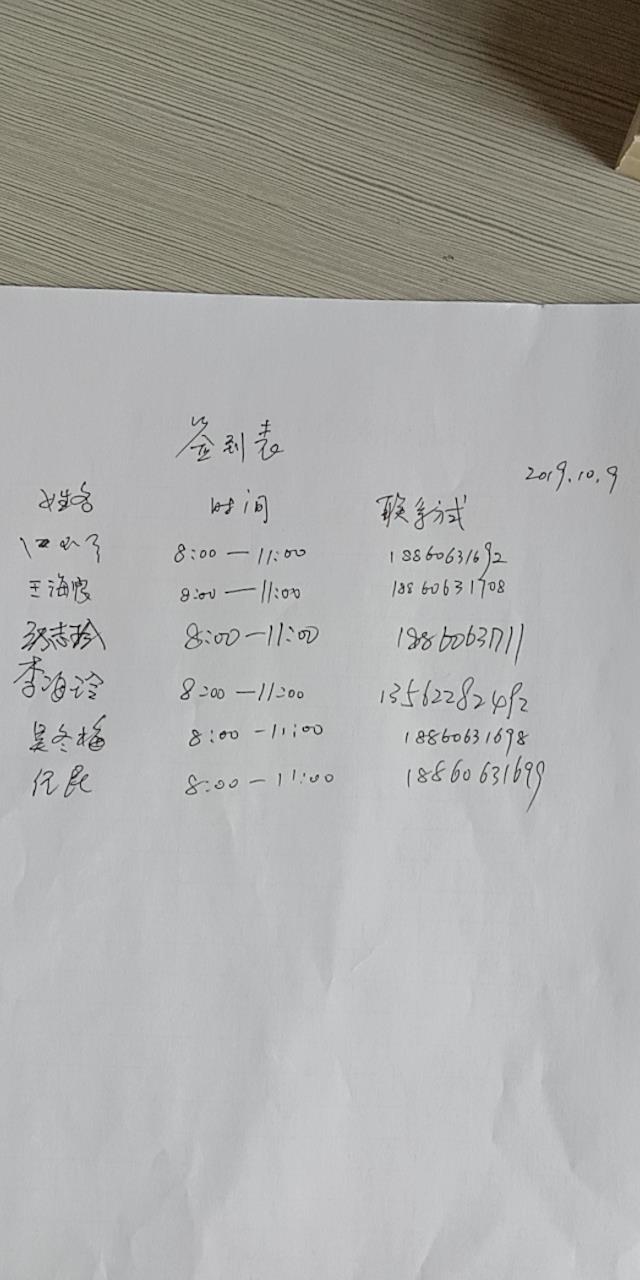 签到表
2019.10.9
姓名 时间 联系方式
8:00—11:00 18860631692
王海 8:00—11:00 18860631708
志玲 8:00—11:00 18860631711
李海玲 8:00—11:00 13562282492
吴冬梅 8:00-11:00 18860631698
任昆 8:00-11:00 18860631699